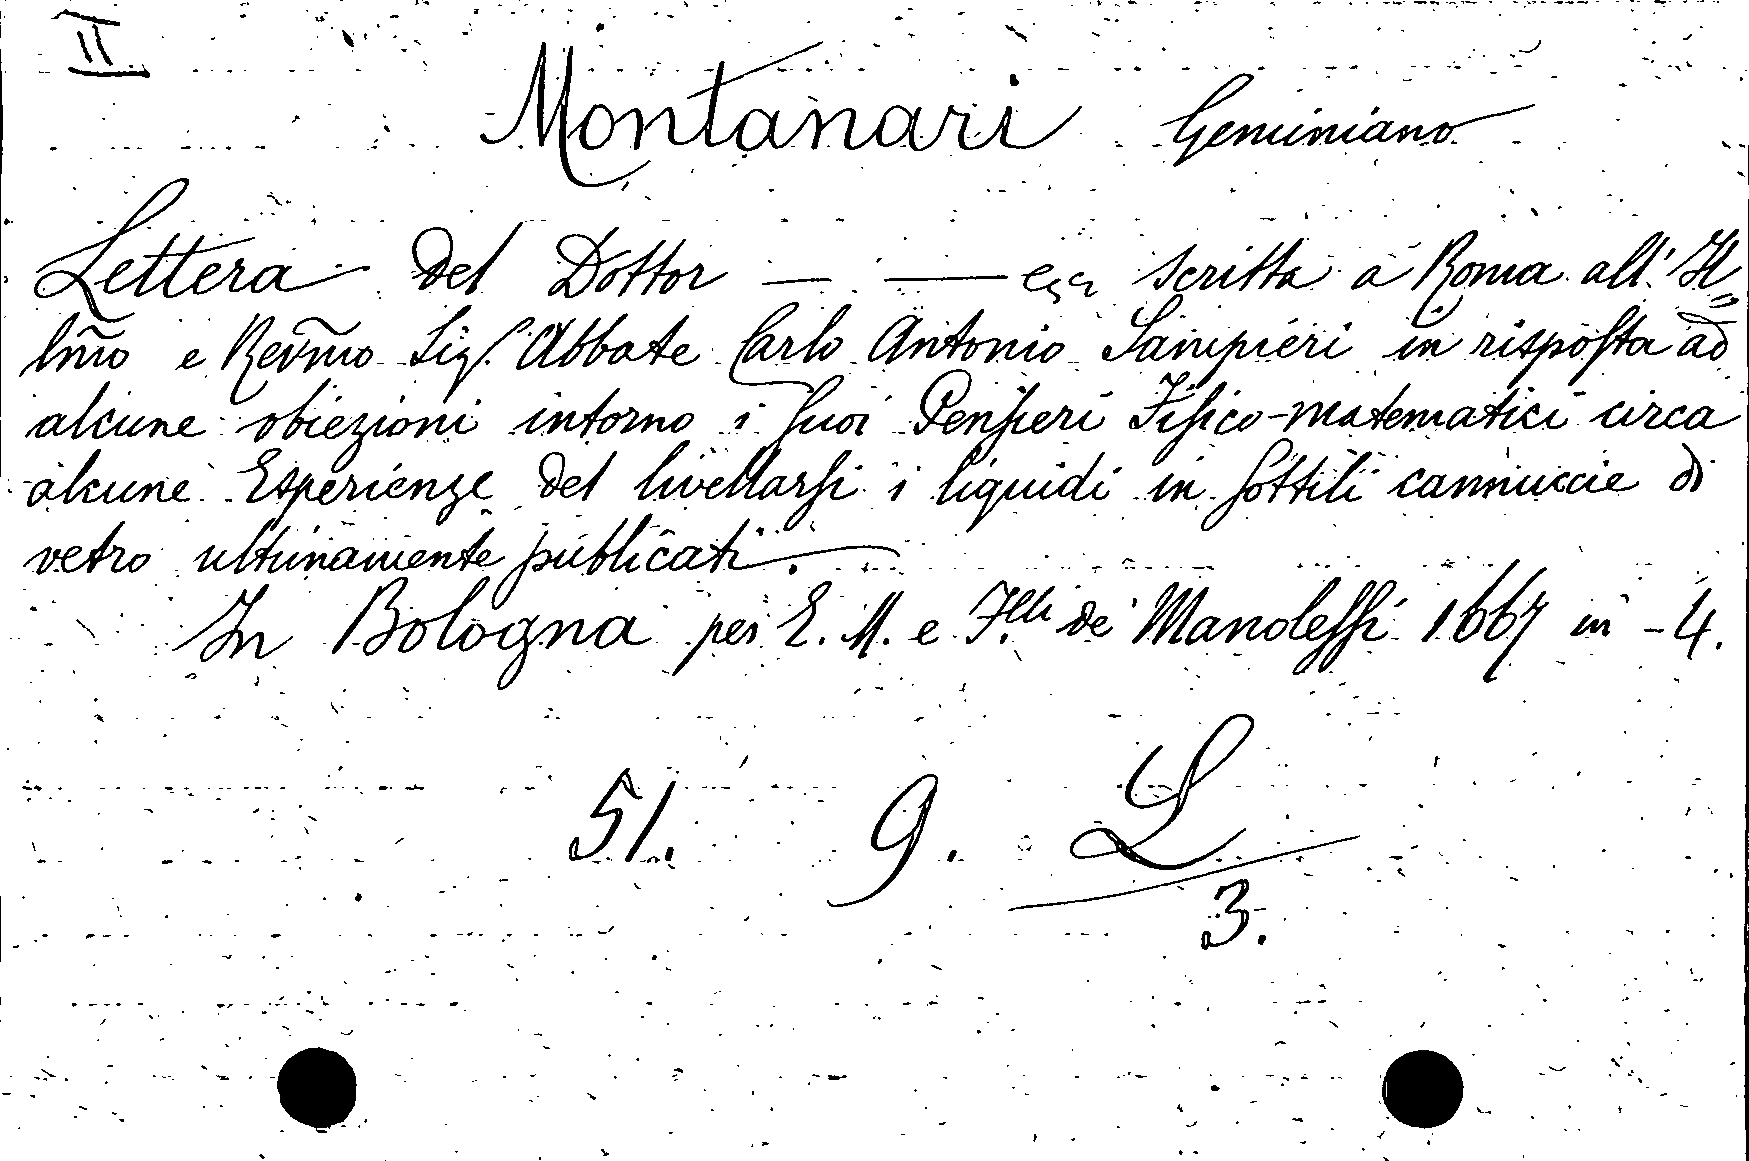 II
Montanari Geminiano
Lettera del Dottor — — ecc scritta a Roma all' Il=
lm̃o e Revm̃o Sig.r Abbate Carlo Antonio Sampieri in risposta ad
alcune obiezioni intorno i suoi Pensieri Fisico-matematici circa
alcune Esperienze del livellarsi i liquidi in sottili cannuccie di
vetro ultimamente publicati.
In Bologna per E. M. e F.lli de Manolessi 1667 in -4.
51. 9. L
3.